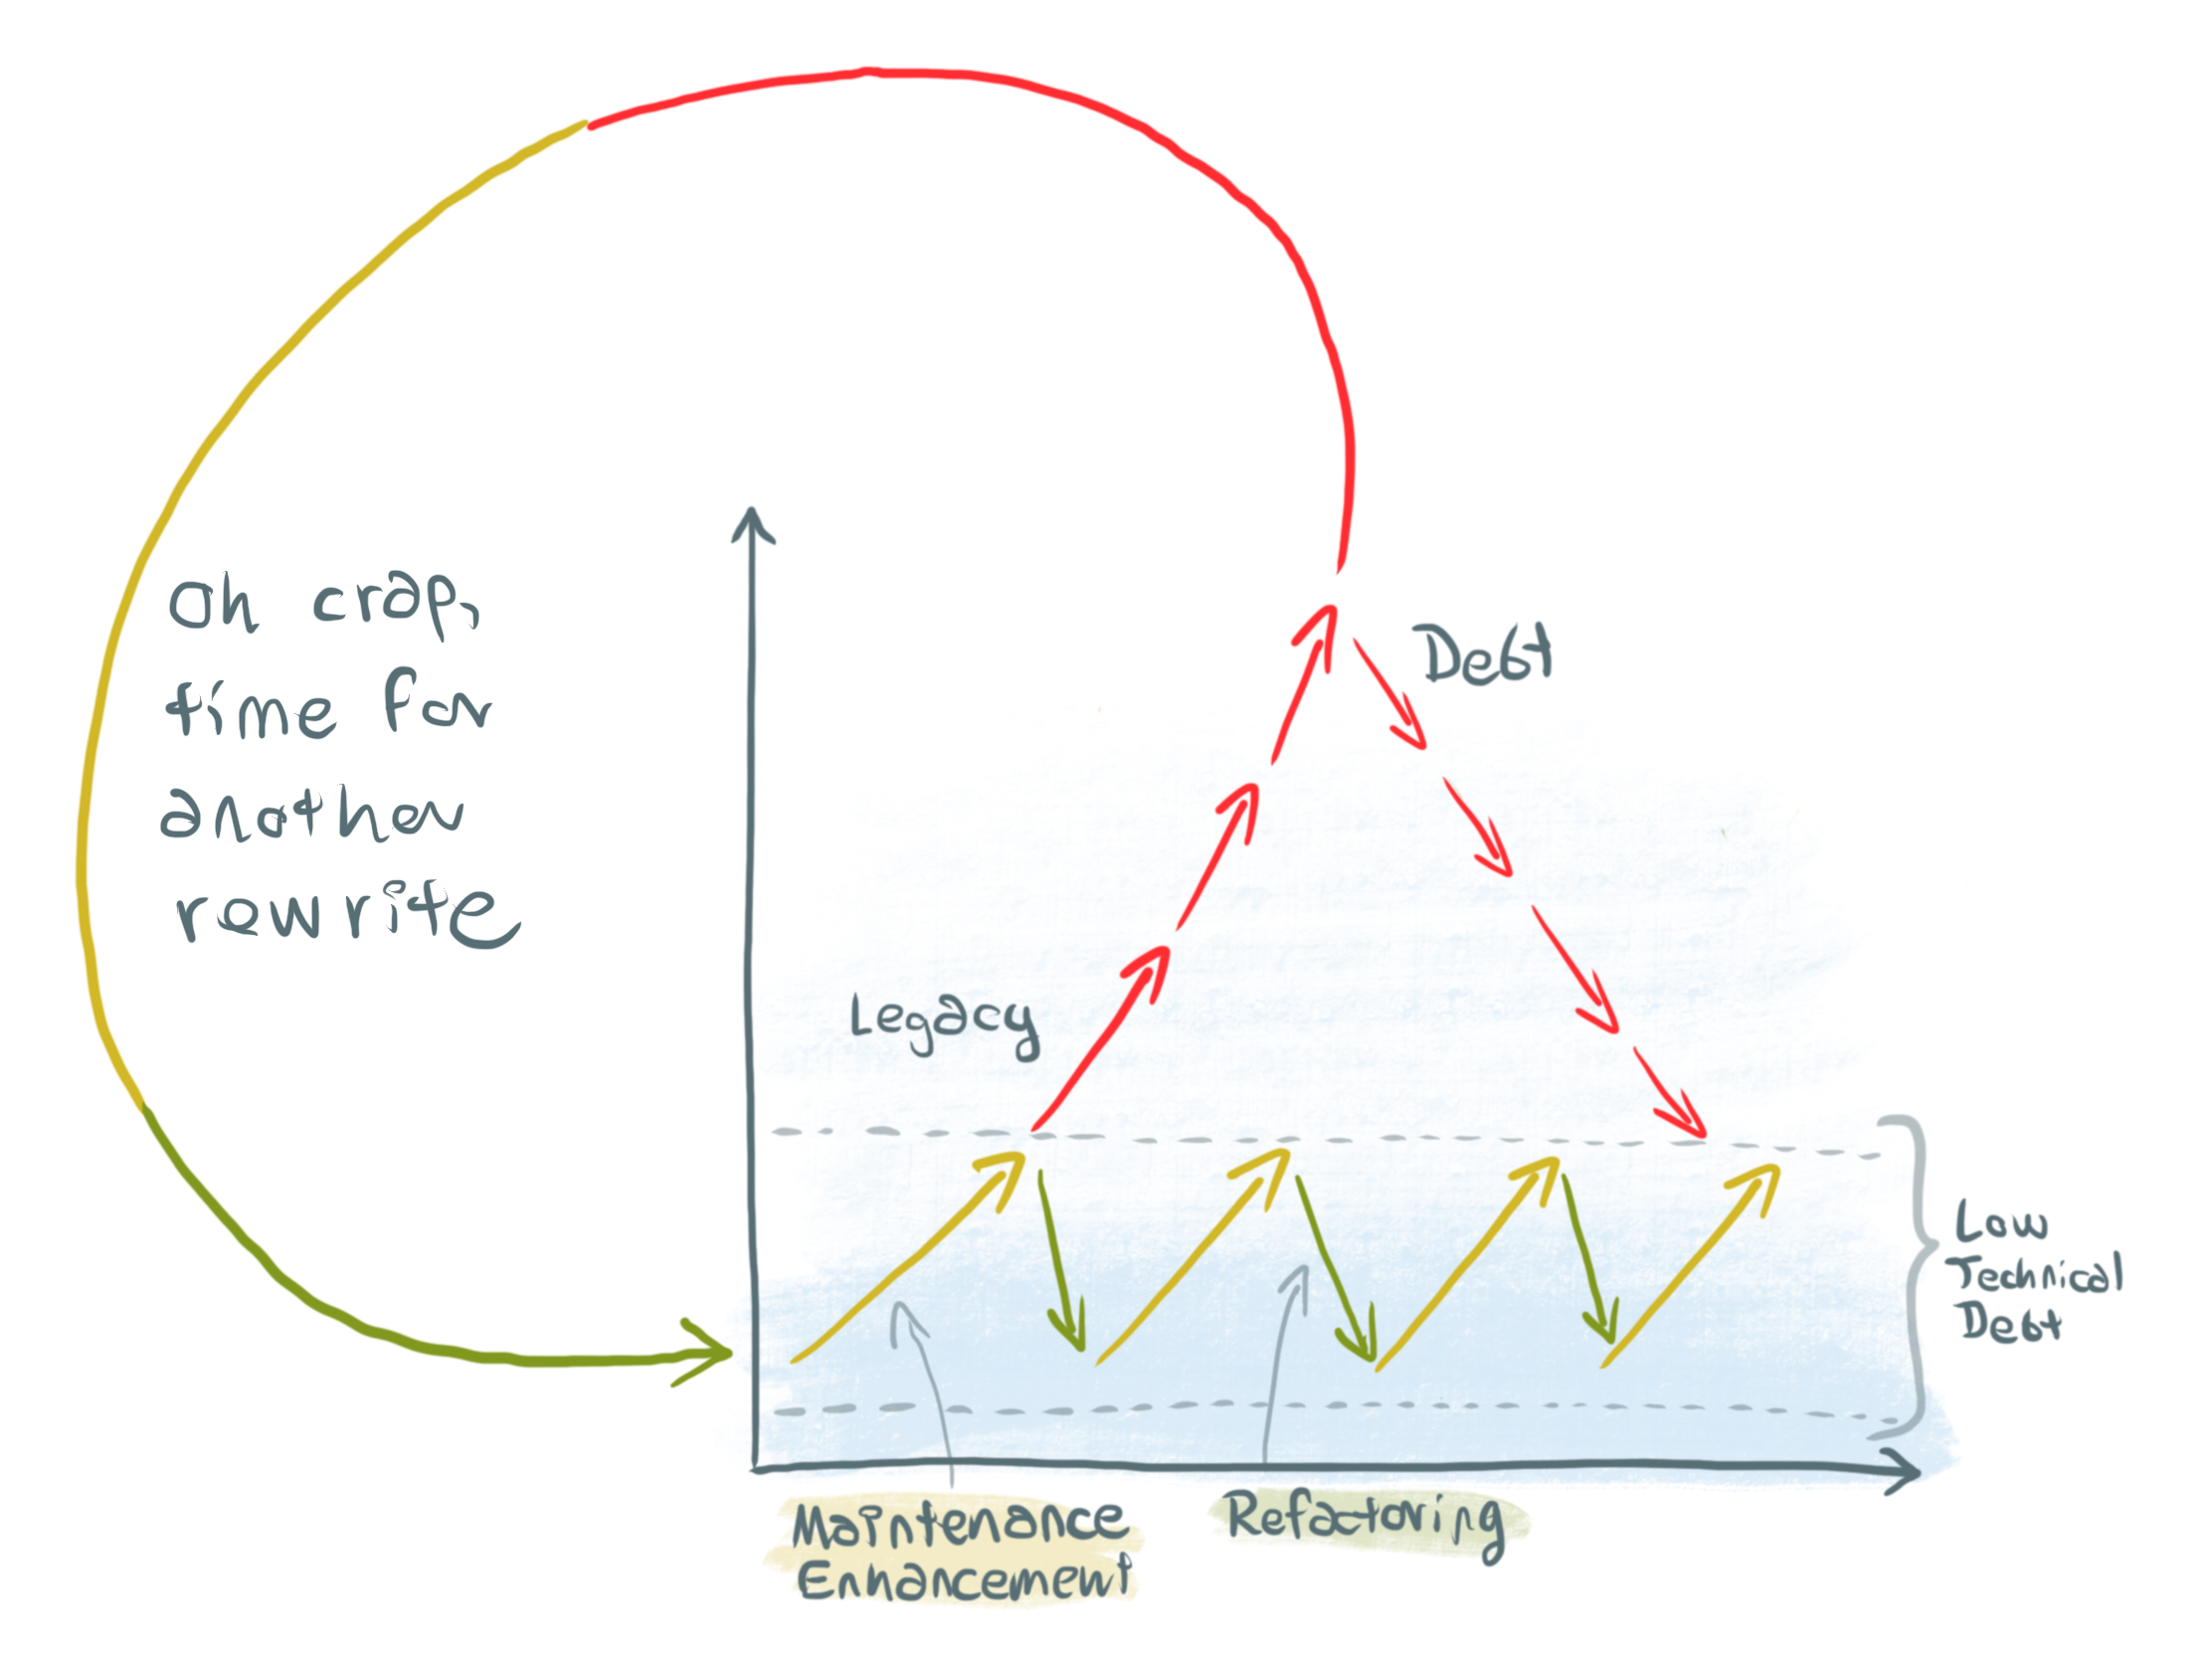 Oh crap,
time for
another
rewrite
Debt
Legacy
Low
Technical
Debt
Maintenance
Enhancement
Refactoring